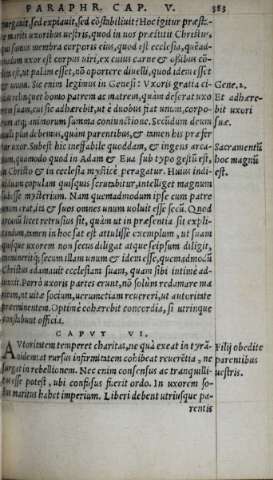 PARAPHR. CAP. V. 383
purgauit, sed expiauit, sed cōstabiliuit: Hoc igitur præste-
mariti uxoribus uestris, quod in nos præstitit Christus,
sumus membra corporis eius, quod est ecclesia, quēad-
modum uxor est corpus uiri, ex cuius carne & oßibus cō-
est, ut palàm esset, nō oportere diuelli, quod idem esset
& unum. Sic enim legimus in Genesi: Vxoris gratia ci- Gene.2.
relinquet homo patrem ac matrem, quàm deserat uxo Et adhære-
suam, cui sic adhærebit, ut è duobus fiat unum, corpo- bit uxori
rum atq; animorum summa coniunctione. Secūdum deum suæ.
plus debemus, quàm parentibus, & tamen his præfer
uxor. Subest hic ineffabile quoddam, & ingens arca- Sacramentū
num, quomodo quod in Adam & Eua sub typo gestū est, hoc magnū
in Christo & in ecclesia mysticè peragatur. Huius indi- est.
uiduam copulam quisquis scrutabitur, intelliget magnum
subesse mysterium. Nam quemadmodum ipse cum patre
unum erat, ita & suos omnes unum uoluit esse secū. Quod
licet retrusius sit, quàm ut in præsentia sit expli-
candum, tamen in hoc sat est attulisse exemplum, ut suam
quisque uxorem non secus diligat atque seipsum diligit,
memineritq; secum illam unum & idem esse, quemadmodū
Christus adamauit ecclesiam suam, quam sibi intimè ad-
iunxit. Porrò uxoris partes erunt, nō solùm redamare ma
ritum, ut uitæ socium, uerumetiam reuereri, ut autoritate
præeminentem. Optimè cohærebit concordia, si utrinque
constabunt officia.
CAPVT VI.
AVtoritatem temperet charitas, ne quà exeat in tyrā- Filij obedite
nidem: at rursus infirmitatem cohibeat reuerētia, ne parentibus
surgat in rebellionem. Nec enim consensus ac tranquilli- uestris.
esse potest, ubi confusus fuerit ordo. In uxorem so-
lus maritus habet imperium. Liberi debent utriusque pa-
rentis